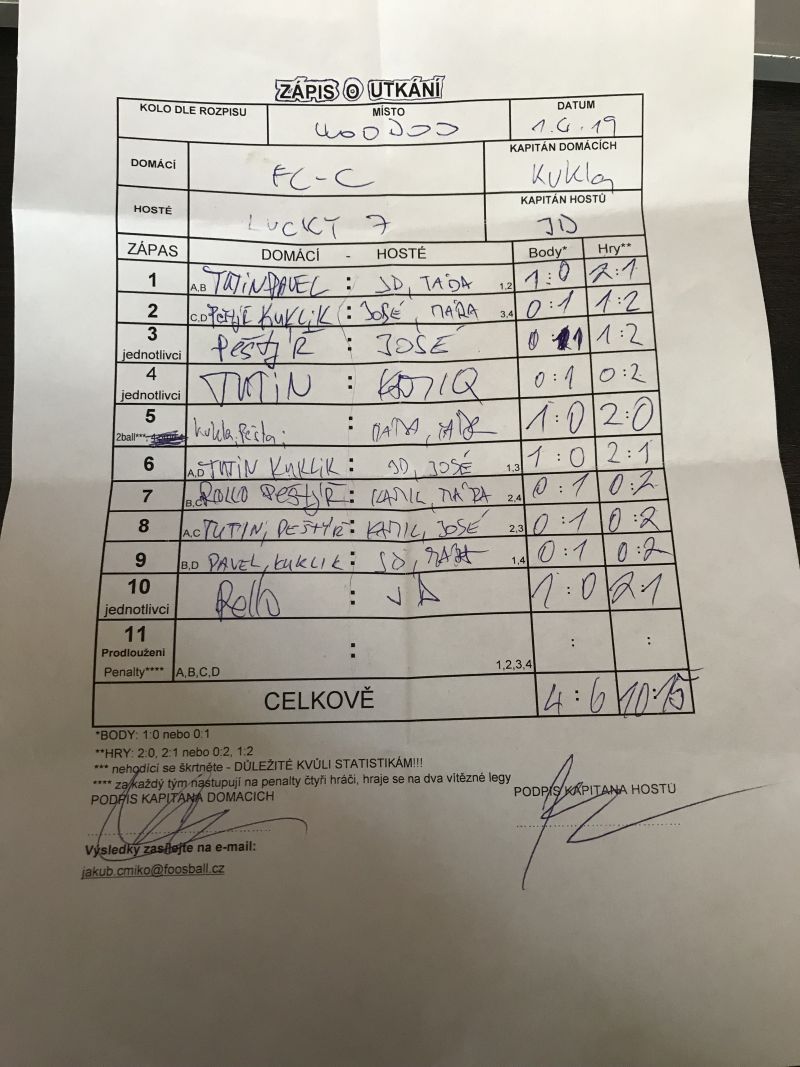 ZÁPIS O UTKÁNÍ
KOLO DLE ROZPISU MÍSTO DATUM
WOODOO 1.4.19
DOMÁCÍ FC-C KAPITÁN DOMÁCÍCH Kukla
HOSTÉ LUCKY 7 KAPITÁN HOSTŮ JD
ZÁPAS DOMÁCÍ - HOSTÉ Body* Hry**
1 A,B TUTIN PAVEL : JD, TAĎA 1,2 1:0 2:1
2 C,D KUKLIK : JOSÉ, MÁRA 3,4 0:1 1:2
3 jednotlivci PEŠTJŘ : JOSÉ 0:1 1:2
4 jednotlivci TUTIN : 0:1 0:2
5 2ball*** kukla, Pešta : 1:0 2:0
6 A,D TUTIN KUKLIK : JD, JOSÉ 1,3 1:0 2:1
7 B,C ROLLO PEŠTJŘ : KAMIL, MÁRA 2,4 0:1 0:2
8 A,C TUTIN, PEŠTÝŘ : KAMIL, JOSÉ 2,3 0:1 0:2
9 B,D PAVEL, KUKLIK : JD, 1,4 0:1 0:2
10 jednotlivci Rollo : JD 1:0 2:1
11 Prodloužení Penalty**** A,B,C,D : 1,2,3,4 : :
CELKOVĚ 4:6 10:15
*BODY: 1:0 nebo 0:1
**HRY: 2:0, 2:1 nebo 0:2, 1:2
*** nehodící se škrtněte - DŮLEŽITÉ KVŮLI STATISTIKÁM!!!
**** za každý tým nastupují na penalty čtyři hráči, hraje se na dva vítězné legy
PODPIS KAPITÁNA DOMÁCÍCH PODPIS KAPITÁNA HOSTŮ
Výsledky zasílejte na e-mail:
jakub.cmiko@foosball.cz